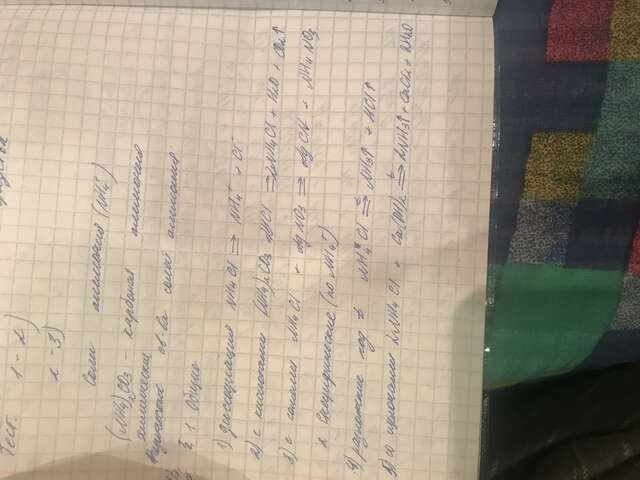 Тест.
1 - 2)
2 - 3)
Соли аммония (NH₄⁺)
(NH₄)₂CO₃ - карбонат аммония
Химические св-ва солей аммония
1 Общие
1) диссоциация NH₄Cl ⇌ NH₄⁺ + Cl⁻
2) с кислотами (NH₄)₂CO₃ + 2HCl ⇒ 2NH₄Cl + H₂O + CO₂↑
3) с солями NH₄Cl + AgNO₃ ⇒ AgCl↓ + NH₄NO₃
2 Специфические (по NH₄⁺)
1) разложение под t NH₄Cl ⇌ NH₃↑ + HCl↑
2) с щелочами 2NH₄Cl + Ca(OH)₂ ⇒ 2NH₃↑ + CaCl₂ + 2H₂O